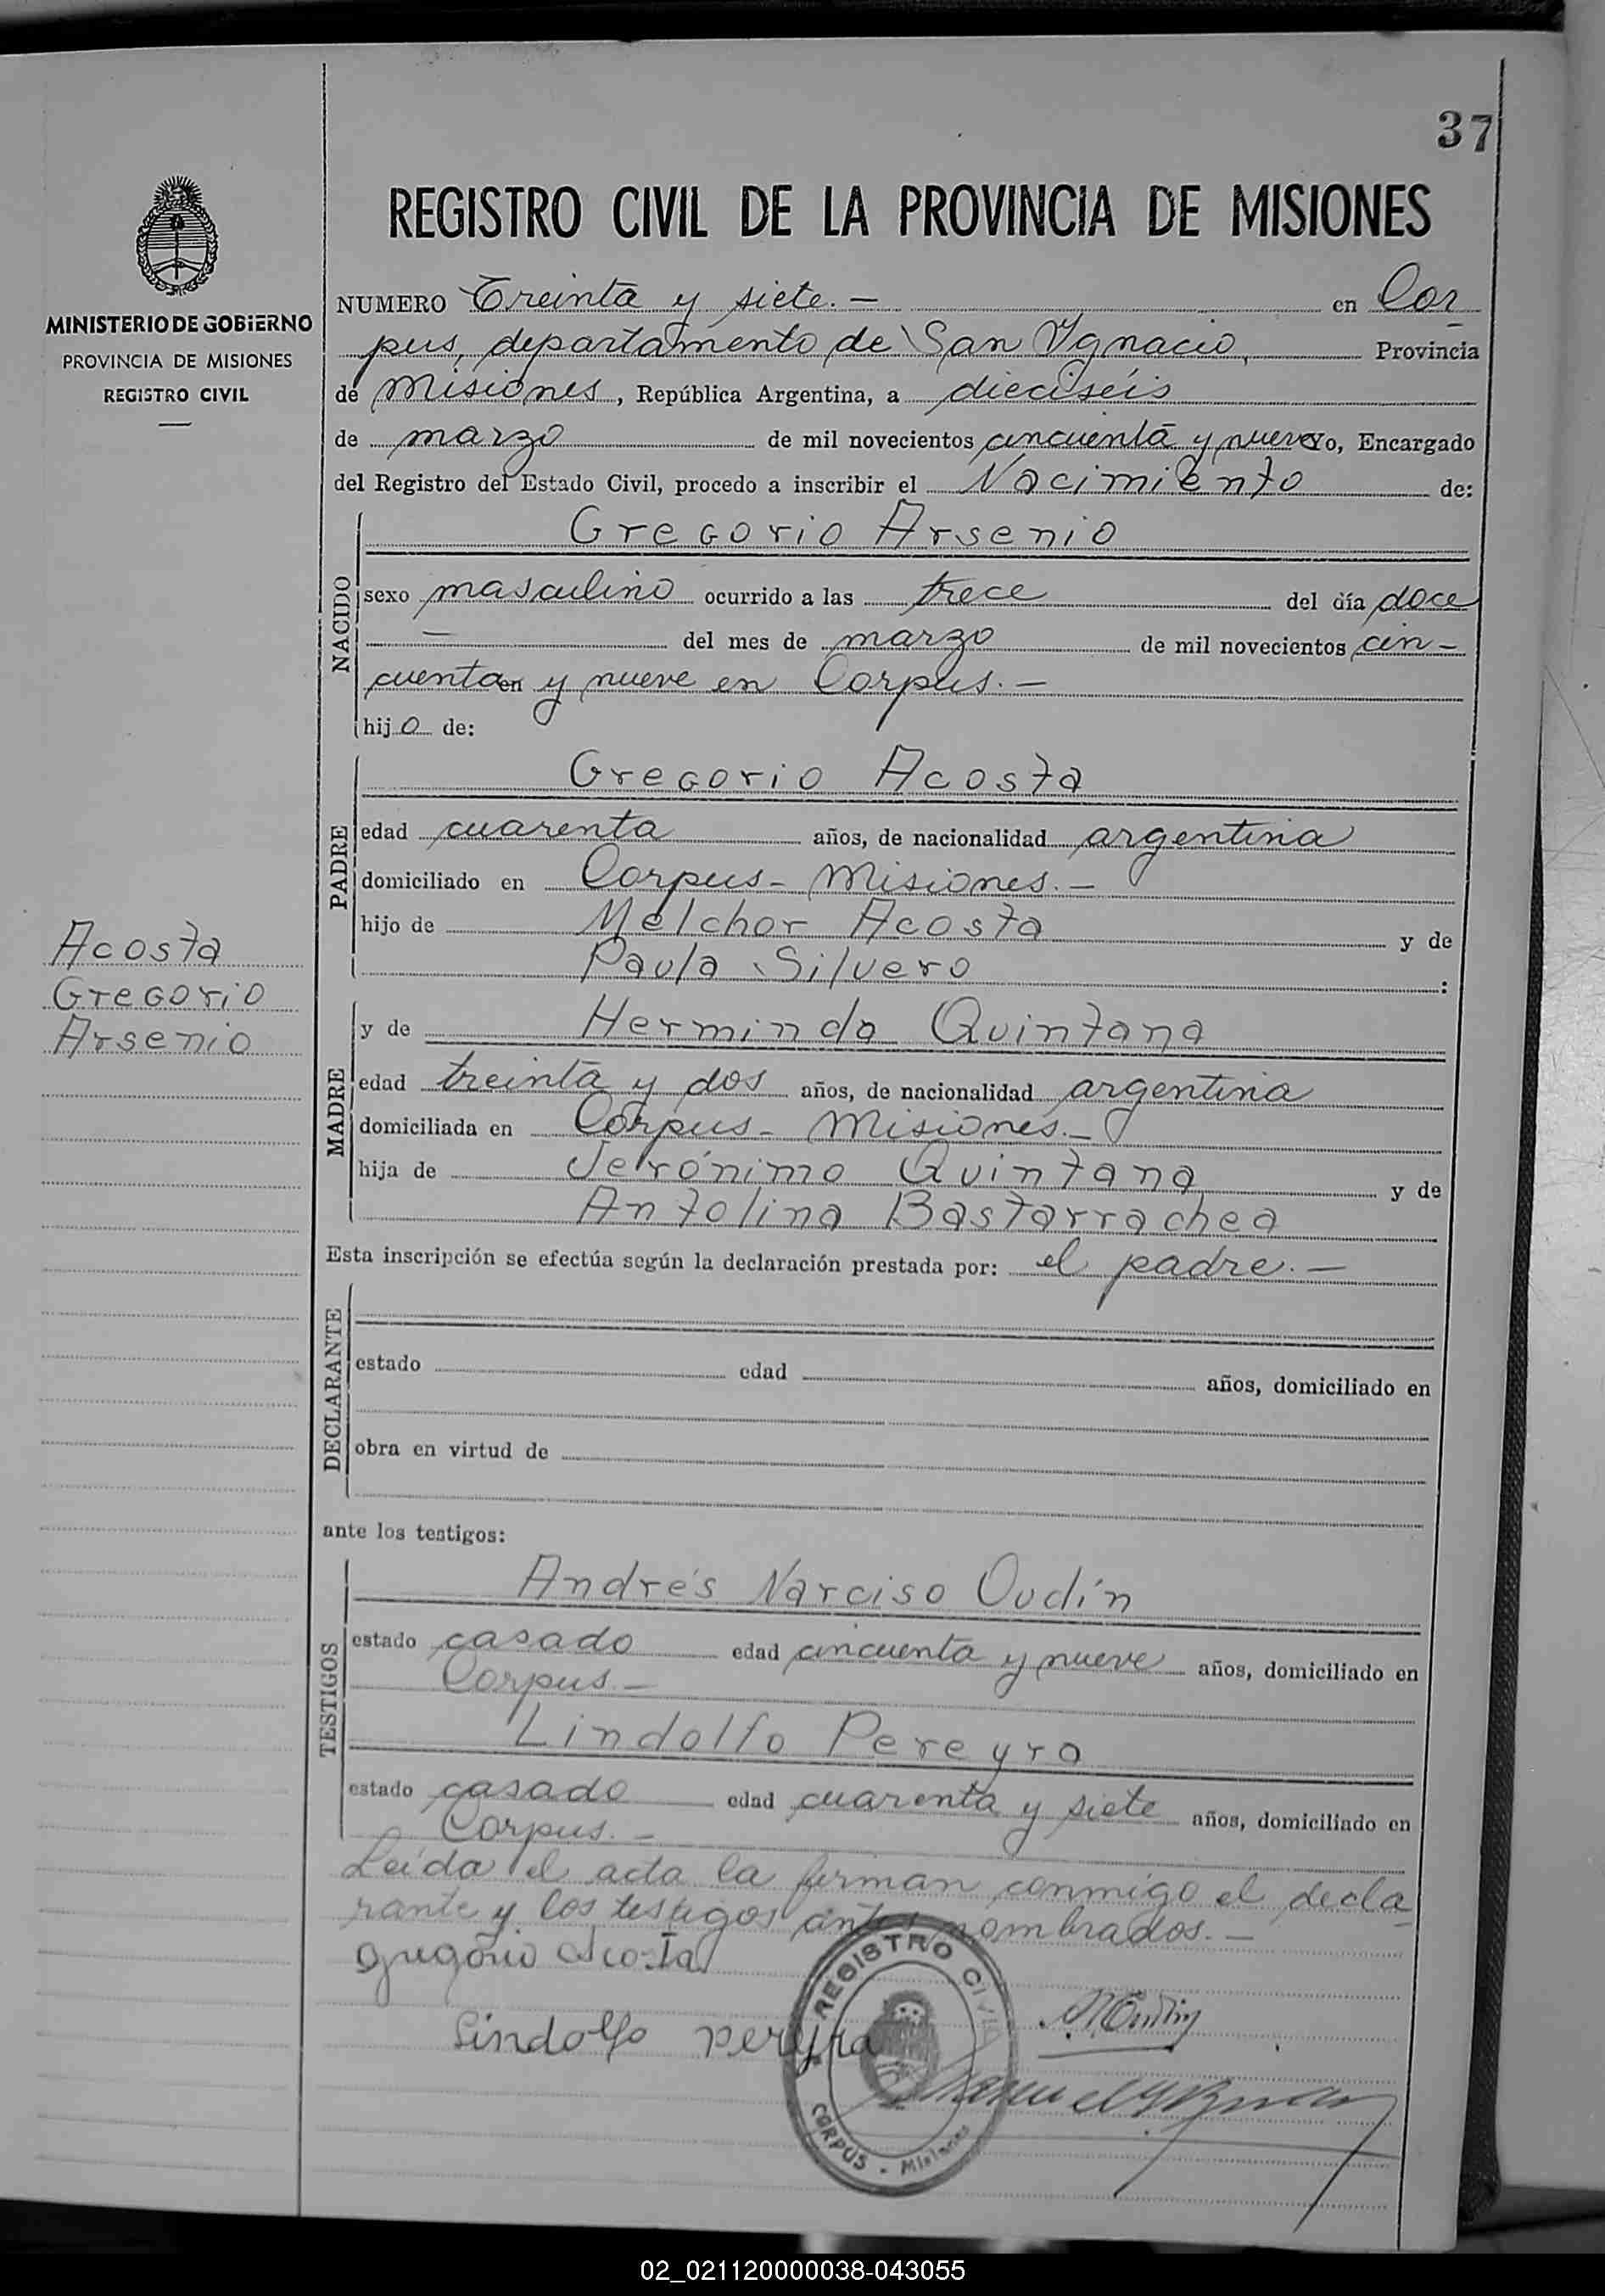 37
REGISTRO CIVIL DE LA PROVINCIA DE MISIONES
MINISTERIO DE GOBIERNO
PROVINCIA DE MISIONES
REGISTRO CIVIL
NUMERO Treinta y siete.- en Cor
pus, departamento de San Ygnacio, Provincia
de Misiones, República Argentina, a dieciséis
de marzo de mil novecientos cincuenta y nueve Yo, Encargado
del Registro del Estado Civil, procedo a inscribir el Nacimiento de:
NACIDO
Gregorio Arsenio
sexo masculino ocurrido a las trece del día doce
- del mes de marzo de mil novecientos cin-
cuenta en y nueve en Corpus.-
hijo de:
PADRE
Gregorio Acosta
edad cuarenta años, de nacionalidad argentina
domiciliado en Corpus - Misiones.-
hijo de Melchor Acosta y de
Paula Silvero :
Acosta
Gregorio
Arsenio
MADRE
y de Herminda Quintana
edad treinta y dos años, de nacionalidad argentina
domiciliada en Corpus - Misiones.-
hija de Jerónimo Quintana y de
Antolina Bastarrachea
Esta inscripción se efectúa según la declaración prestada por: el padre.-
DECLARANTE
estado edad años, domiciliado en
obra en virtud de
ante los testigos:
TESTIGOS
Andrés Narciso Oudín
estado casado edad cincuenta y nueve años, domiciliado en
Corpus.-
Lindolfo Pereyra
estado casado edad cuarenta y siete años, domiciliado en
Corpus.-
Leída el acta la firman conmigo el decla
rante y los testigos antes nombrados.-
Gregorio Acosta
Lindolfo pereyra
REGISTRO CIVIL
CORPUS - Misiones
02_021120000038-043055